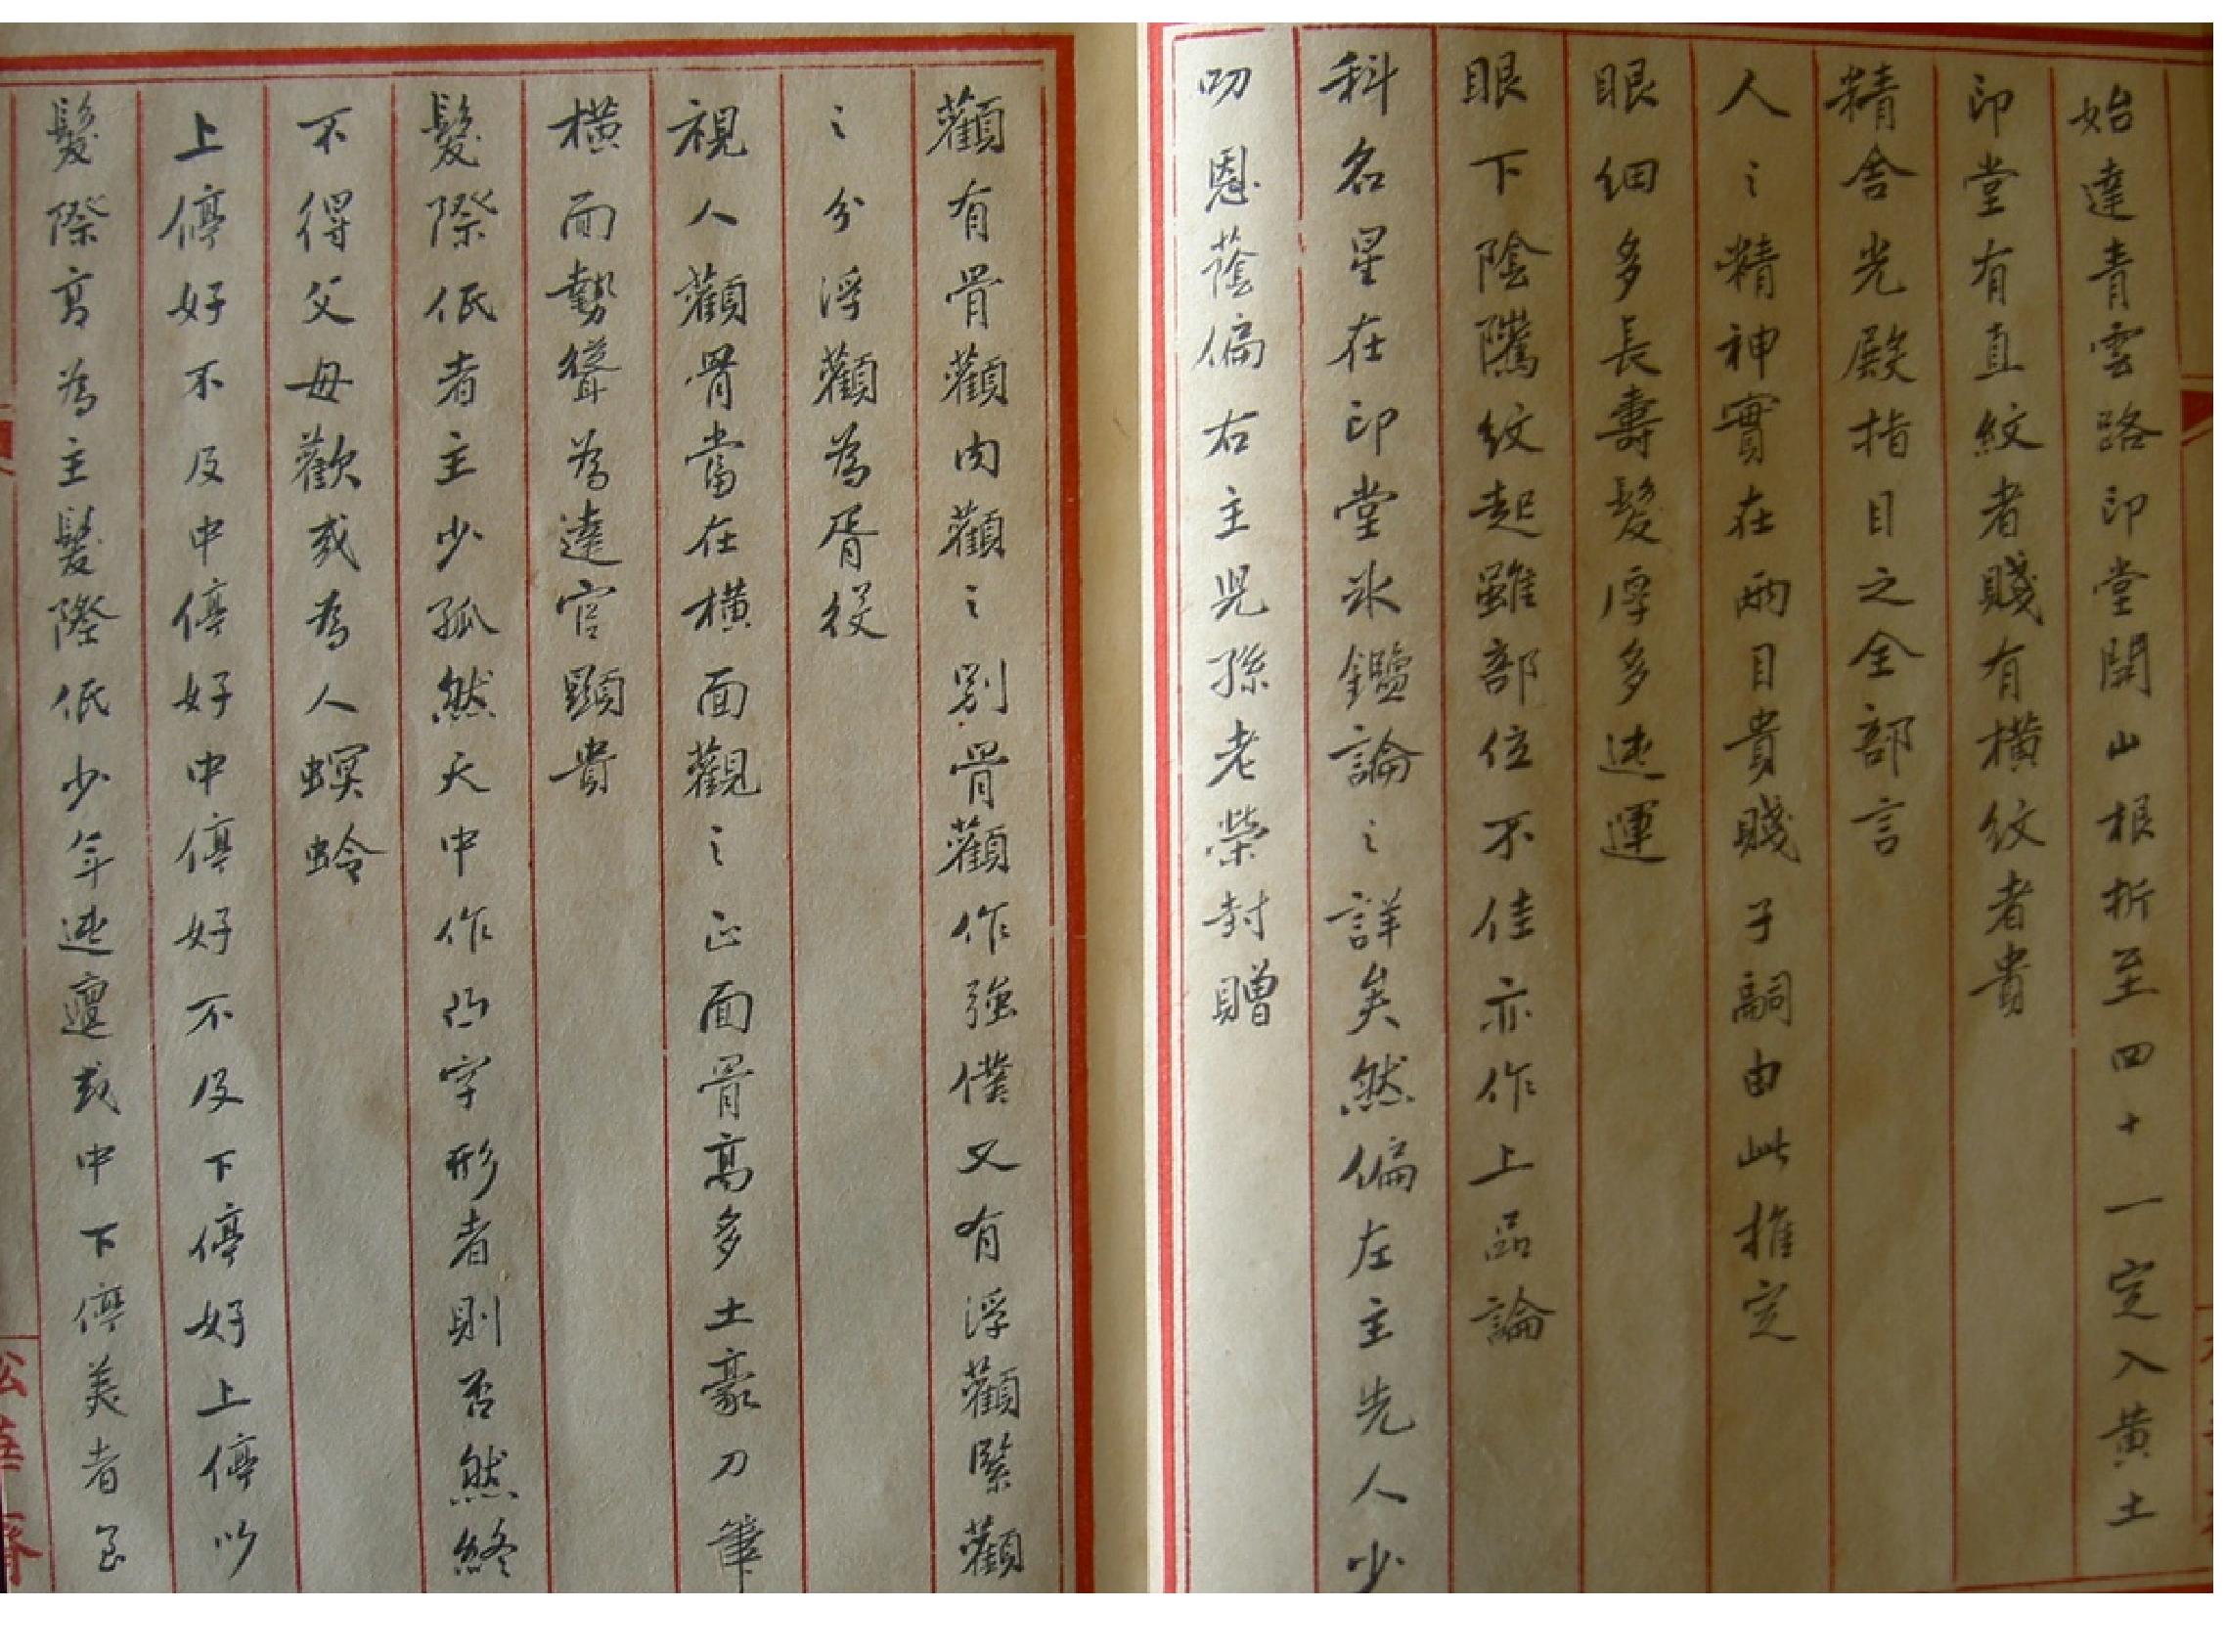 始達青雲路印堂開山根折至四十一定入黃土
印堂有直紋者賤有橫紋者貴
精舍光殿指目之全部言
人之精神實在兩目貴賤子嗣由此推定
眼細多長壽髮厚多迍運
眼下陰隲紋起雖部位不佳亦作上品論
科名星在印堂冰鑑論之詳矣然偏左主先人少
叨恩蔭偏右主兒孫老榮封贈
顴有骨顴肉顴之別骨顴作強僕又有浮顴緊顴
之分浮顴為胥役
視人顴骨當在橫面觀之正面骨高多土豪刀筆
橫面勢聳為達官顯貴
髮際低者主少孤然天中作凸字形者則否然終
不得父母歡或為人螟蛉
上停好不及中停好中停好不及下停好上停以
髮際高為主髮際低少年迍邅或中下停美者
松華齋